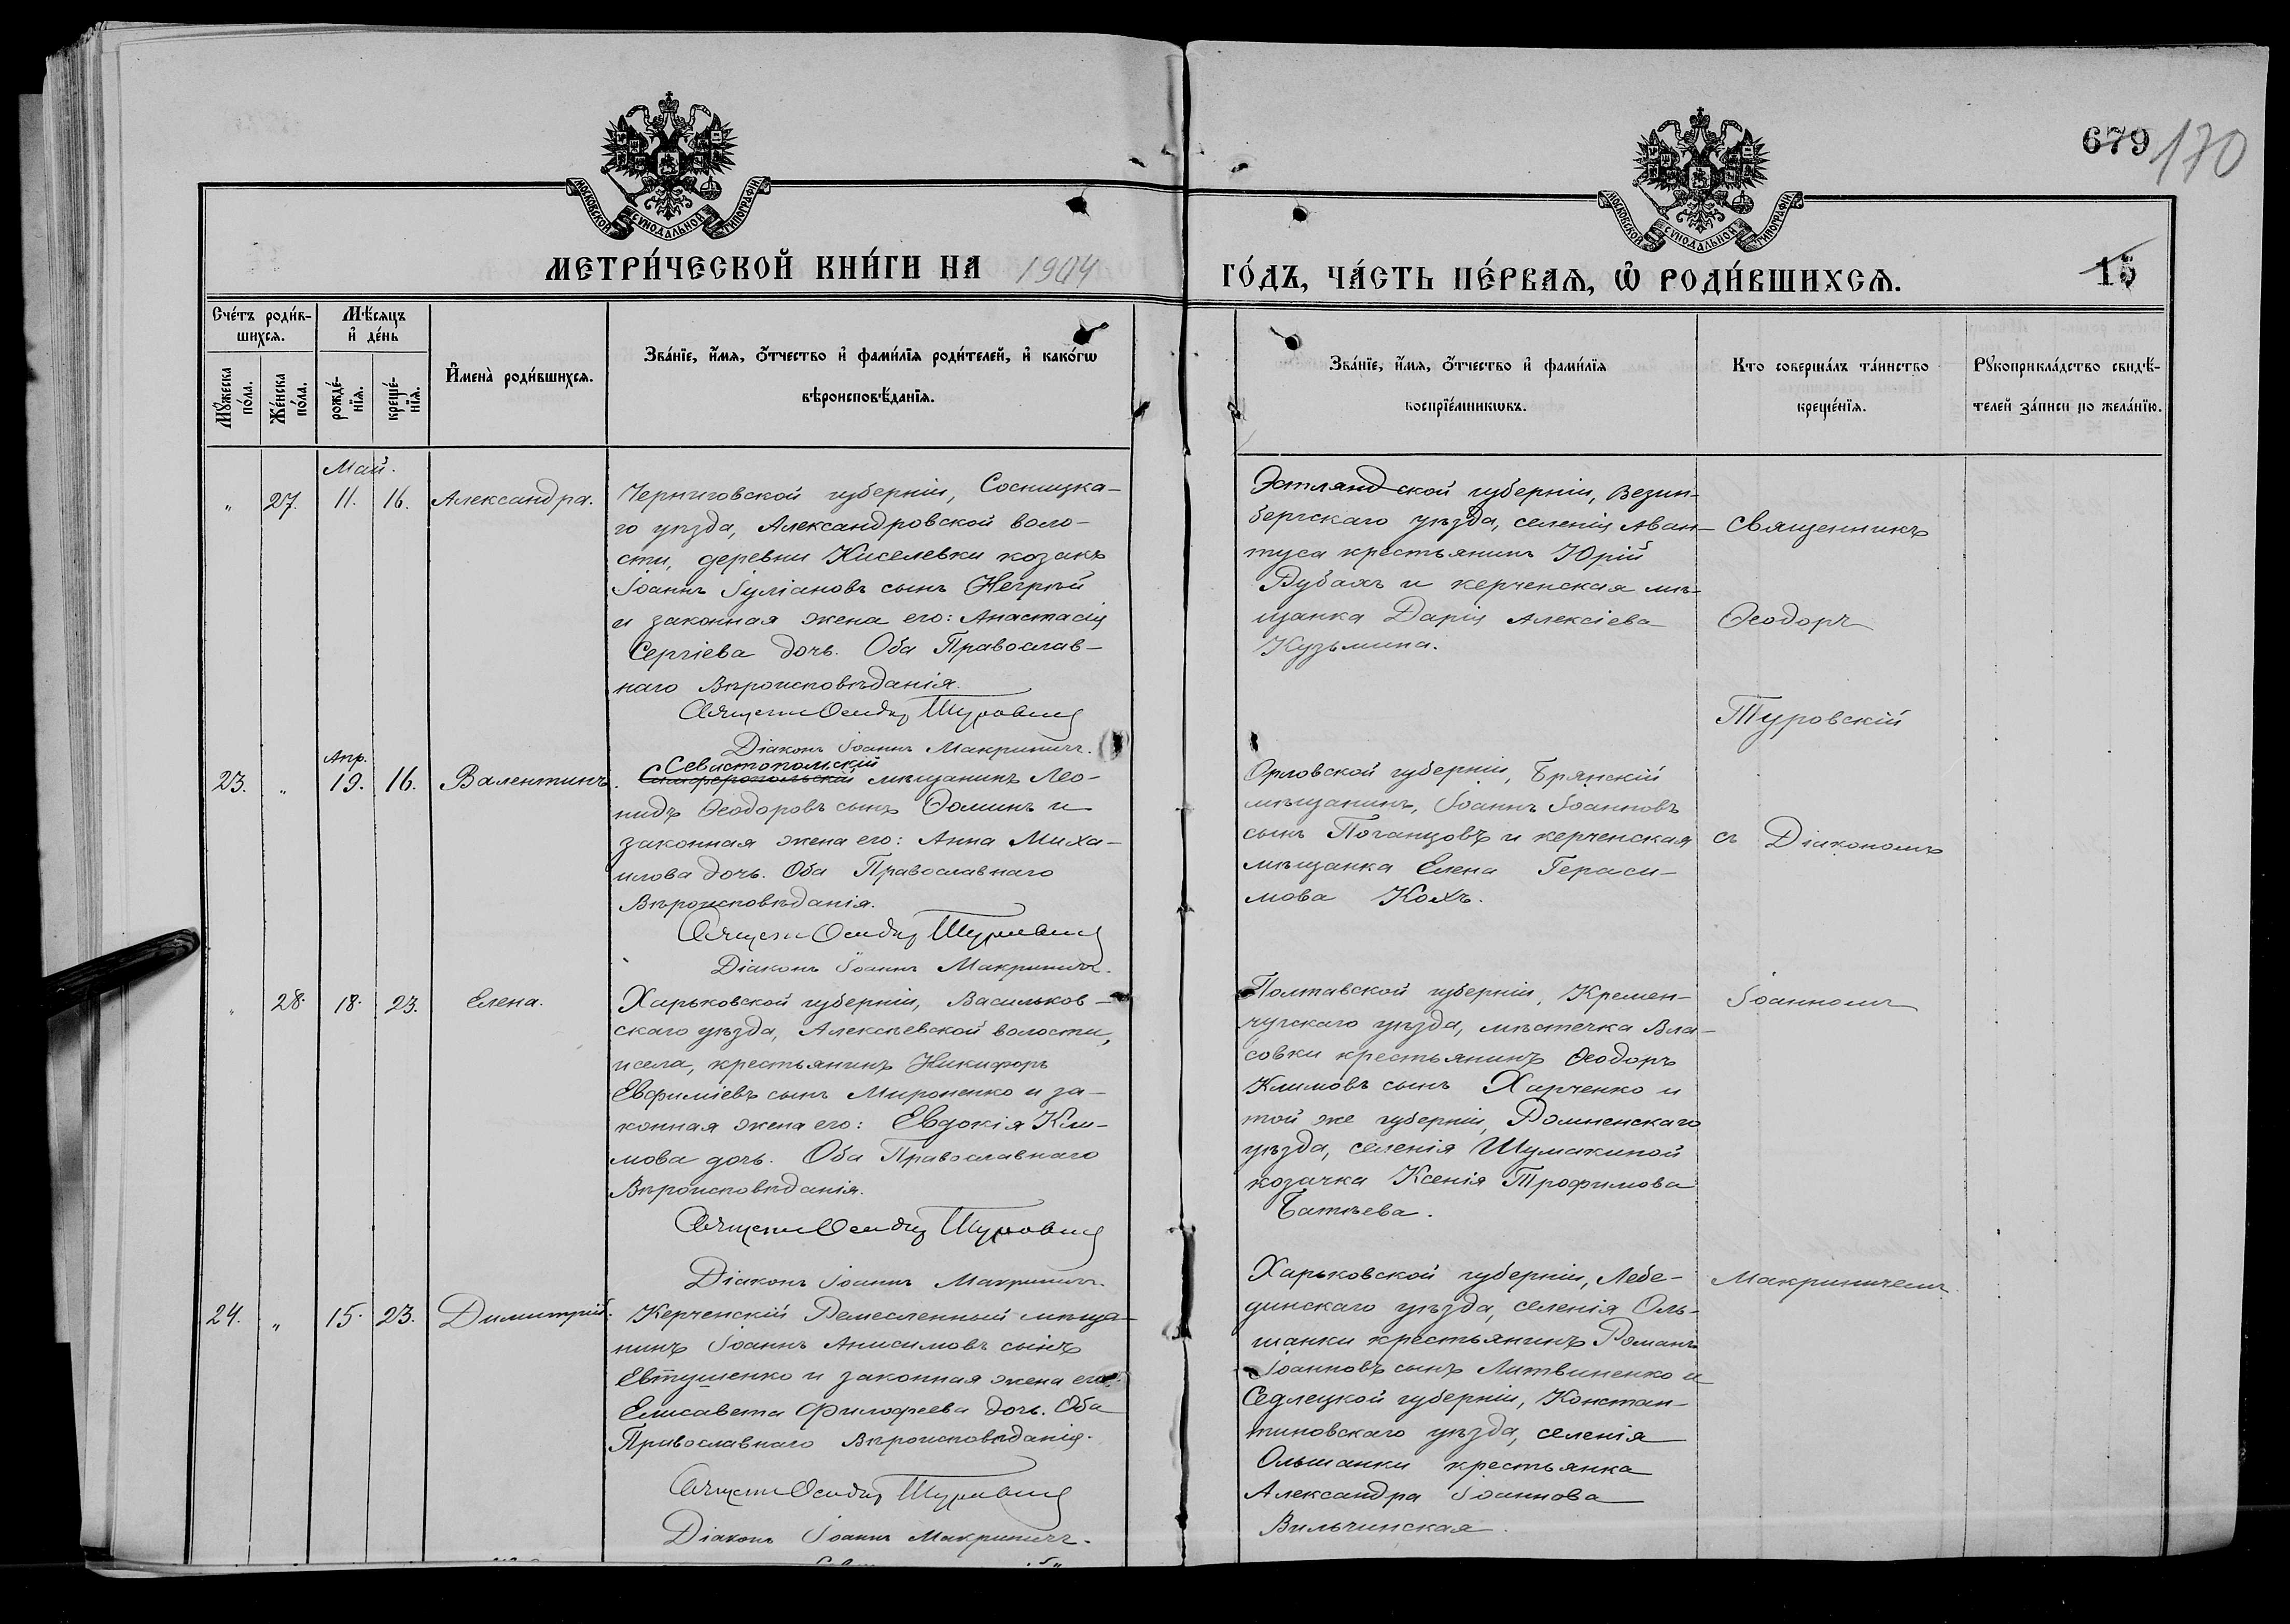 679
170
МОСКОВСКОЙ СѴНОДАЛЬНОЙ ТИПОГРАФІИ
МОСКОВСКОЙ СѴНОДАЛЬНОЙ ТИПОГРАФІИ
МЕТРИ́ЧЕСКОЙ КНИ́ГИ НА 1904
ГО́ДЪ, ЧА́СТЬ ПЕ́РВАЯ, Ѡ҆ РОДИ́ВШИХСЯ.
15
Сче́тъ роди́в-
шихся.
Мѣ́сяцъ
и҆ де́нь
Мꙋ́жеска
по́ла.
Же́нска
по́ла.
рожде́-
нїя.
креще́-
нїя.
И҆мена̀ роди́вшихся.
Зва́нїе, и҆́мя, ѻ҆́тчество и҆ фами́лїя роди́телей, и҆ како́гѡ
вѣроисповѣ́данїя.
Зва́нїе, и҆́мя, ѻ҆́тчество и҆ фами́лїя
воспрїе́мникѡвъ.
Кто соверша́лъ та́инство
креще́нїя.
Рꙋкоприкла́дство свидѣ́-
телей за́писи по жела́нїю.
Май.
" 27. 11. 16. Александра.
Черниговской губерніи, Сосницка-
го уѣзда, Александровской воло-
сти, деревни Киселевки козакъ
Іоаннъ Іуліановъ сынъ Негрѣй
и законная жена его: Анастасія
Сергіева дочь. Оба Православ-
наго Вѣроисповѣданія.
Священ Ѳеодор Туровскій
Діаконъ Іоаннъ Макриничъ.
Эстляндской губерніи, Везин-
бергскаго уѣзда, селенія Аван-
туса крестьянинъ Юрій
Рубахъ и керченская мѣ-
щанка Дарія Алексіева
Кузьмина.
Священникъ
Ѳеодоръ
Туровскій
Апр.
23. " 19. 16. Валентинъ.
Севастопольскій
Симферопольскій мѣщанинъ Лео-
нидъ Ѳеодоровъ сынъ Ѳоминъ и
законная жена его: Анна Миха-
илова дочь. Оба Православнаго
Вѣроисповѣданія.
Священ Ѳеодор Туровскій
Діаконъ Іоаннъ Макриничъ.
Орловской губерніи, Брянскій
мѣщанинъ, Іоаннъ Іоанновъ
сынъ Поганцовъ и керченская
мѣщанка Елена Гераси-
мова Кохъ.
съ Діакономъ
" 28. 18. 23. Елена.
Харьковской губерніи, Васильков-
скаго уѣзда, Алексѣевской волости,
и села, крестьянинъ Никифоръ
Евфиміевъ сынъ Мироненко и за-
конная жена его: Евдокія Кли-
мова дочь. Оба Православнаго
Вѣроисповѣданія.
Священ Ѳеодор Туровскій
Діаконъ Іоаннъ Макриничъ.
Полтавской губерніи, Кремен-
чугскаго уѣзда, мѣстечка Вла-
совки крестьянинъ Ѳеодоръ
Климовъ сынъ Харченко и
той же губерніи, Роменскаго
уѣзда, селенія Шумакиной
козачка Ксенія Трофимова
Батѣева.
Іоанномъ
24. " 15. 23. Димитрій.
Керченскій Ремесленный мѣща-
нинъ Іоаннъ Анисимовъ сынъ
Евтушенко и законная жена его:
Елисавета Филофеева дочь. Оба
Православнаго Вѣроисповѣданія.
Священ Ѳеодор Туровскій
Діаконъ Іоаннъ Макриничъ.
Харьковской губерніи, Лебе-
динскаго уѣзда, селенія Оль-
шанки крестьянинъ Романъ
Іоанновъ сынъ Литвиненко и
Седлецкой губерніи, Констан-
тиновскаго уѣзда, селенія
Ольшанки крестьянка
Александра Іоаннова
Вильчинская.
Макриничемъ.